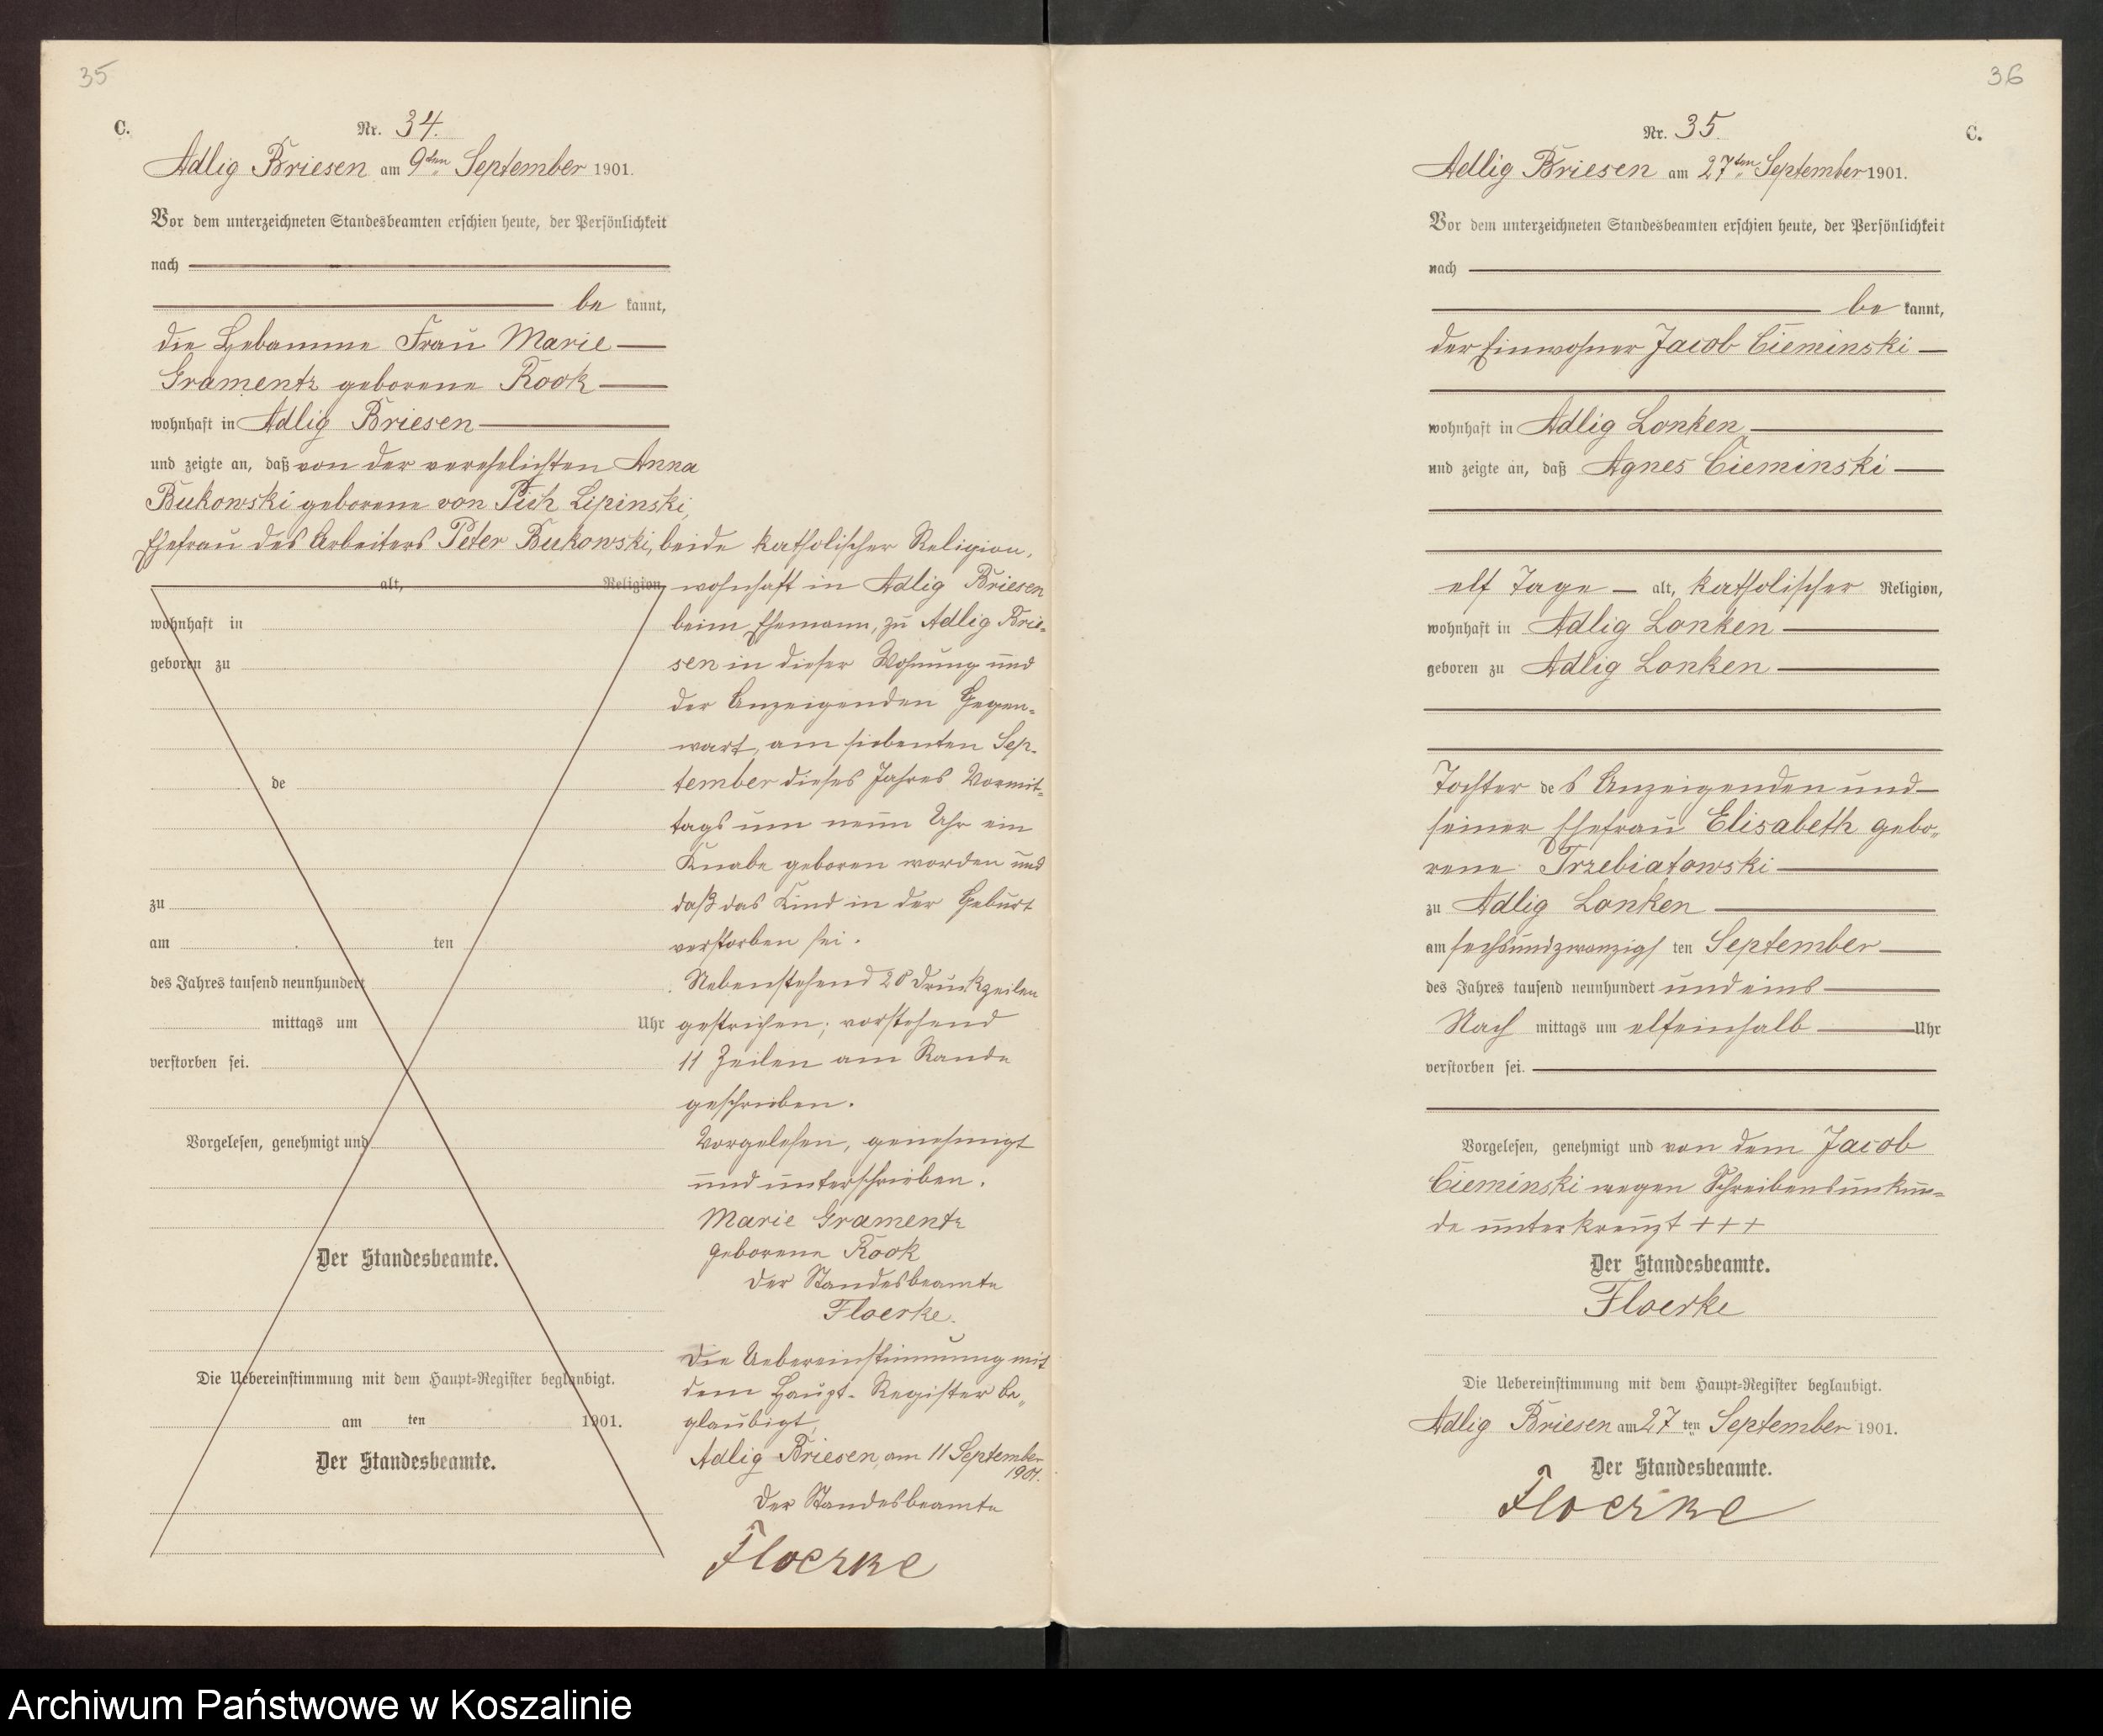 35
C.
Nr. 34.
Adlig Briesen am 9ten September 1901.
Vor dem unterzeichneten Standesbeamten erschien heute, der Persönlichkeit
nach
be kannt,
die Hebamme Frau Marie
Gramentz geborene Rook
wohnhaft in Adlig Briesen
und zeigte an, daß von der verehelichten Anna
Bukowski geborene von Pich Lipinski,
Ehefrau des Arbeiters Peter Bukowski, beide katholischer Religion,
alt, Religion,
wohnhaft in
geboren zu
de
zu
am ten
des Jahres tausend neunhundert
mittags um Uhr
verstorben sei.
Vorgelesen, genehmigt und
Der Standesbeamte.
Die Uebereinstimmung mit dem Haupt-Register beglaubigt.
am ten 1901.
Der Standesbeamte.
wohnhaft in Adlig Briesen
beim Ehemann, zu Adlig Brie-
sen in dieser Wohnung und
der Anzeigenden Gegen-
wart, am siebenten Sep-
tember dieses Jahres Vormit-
tags um neun Uhr ein
Knabe geboren worden und
daß das Kind in der Geburt
verstorben sei.
Nebenstehend 20 Druckzeilen
gestrichen; vorstehend
11 Zeilen am Rande
geschrieben.
Vorgelesen, genehmigt
und unterschrieben.
Marie Gramentz
geborene Rook
Der Standesbeamte
Floerke.
Die Uebereinstimmung mit
dem Haupt-Register be-
glaubigt,
Adlig Briesen, am 11 September
1901.
Der Standesbeamte
Floerke
36
C.
Nr. 35.
Adlig Briesen am 27ten September 1901.
Vor dem unterzeichneten Standesbeamten erschien heute, der Persönlichkeit
nach
be kannt,
der Einwohner Jacob Cieminski
wohnhaft in Adlig Lonken
und zeigte an, daß Agnes Cieminski
elf Tage alt, katholischer Religion,
wohnhaft in Adlig Lonken
geboren zu Adlig Lonken
Tochter des Anzeigenden und
seiner Ehefrau Elisabeth gebo-
rene Trzebiatowski
zu Adlig Lonken
am sechsundzwanzigs ten September
des Jahres tausend neunhundert und eins
Nach mittags um elfeinhalb Uhr
verstorben sei.
Vorgelesen, genehmigt und von dem Jacob
Cieminski wegen Schreibensunkun-
de unterkreuzt +++
Der Standesbeamte.
Floerke
Die Uebereinstimmung mit dem Haupt-Register beglaubigt.
Adlig Briesen am 27 ten September 1901.
Der Standesbeamte.
Floerke
Archiwum Państwowe w Koszalinie